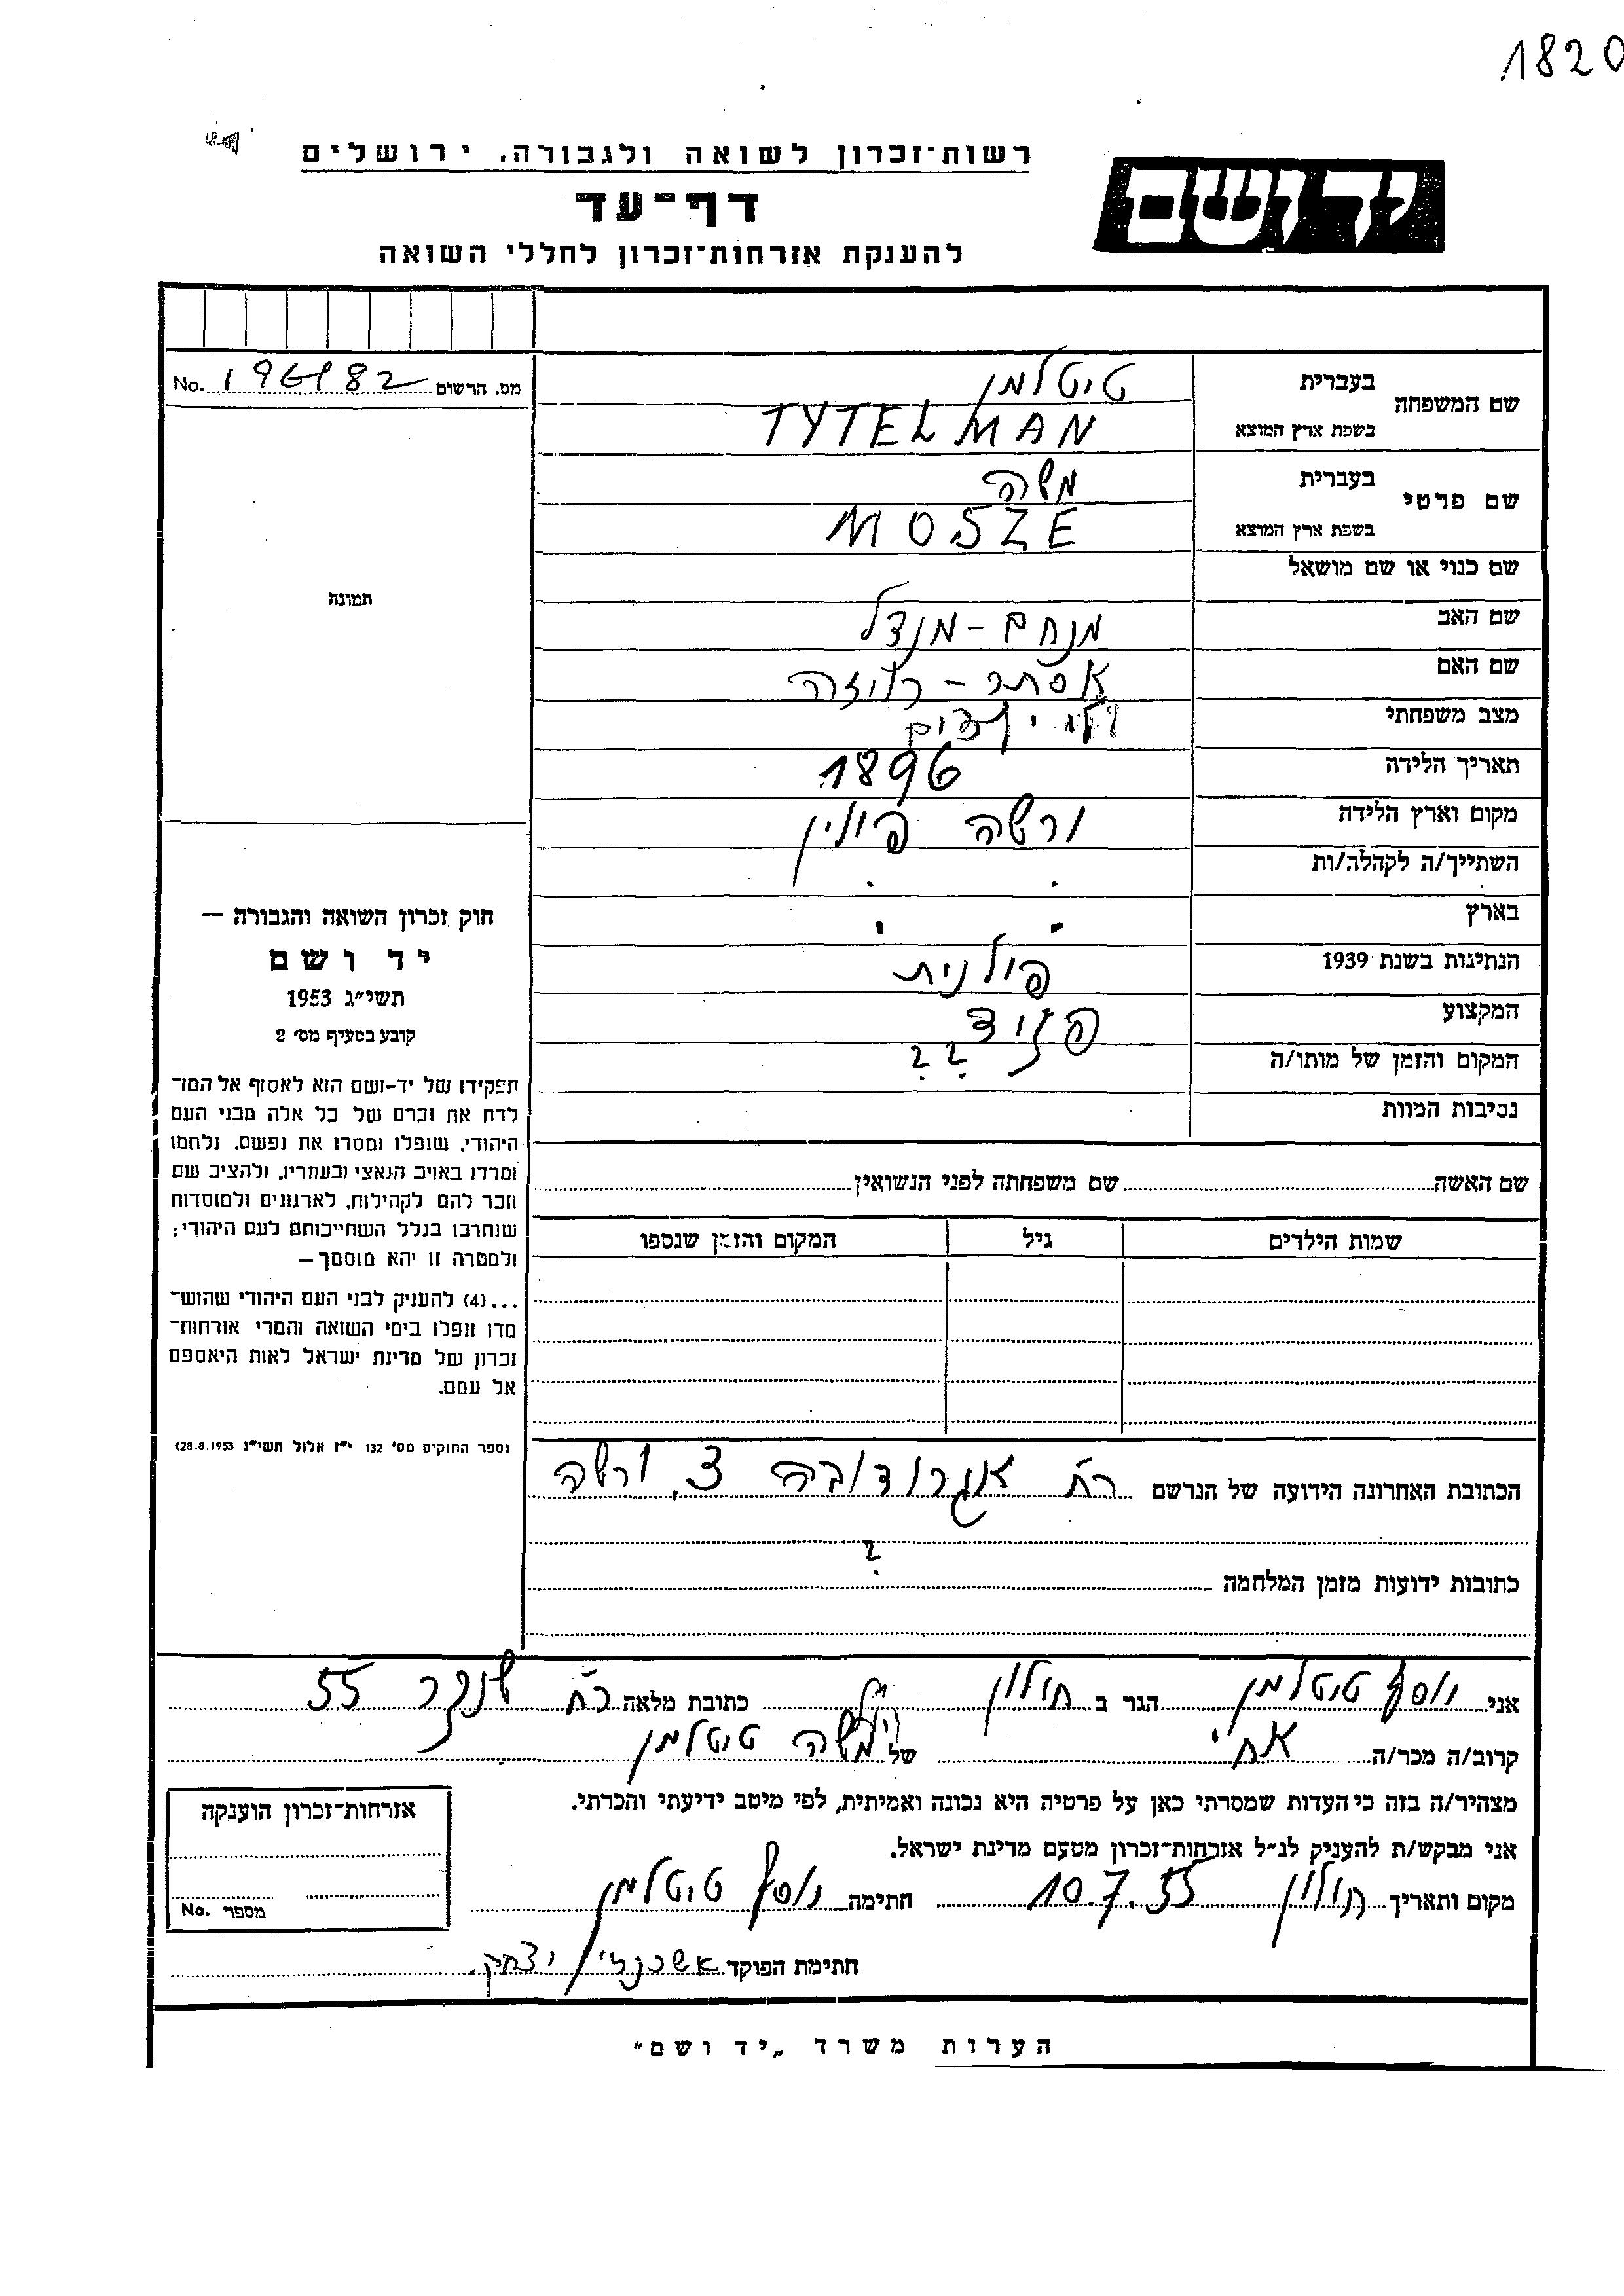 1820
רשות־זכרון לשואה ולגבורה, ירושלים
יד ושם
דף־עד
להענקת אזרחות־זכרון לחללי השואה
מס. הרשום No.
שם המשפחה
בעברית טיטלמן
בשפת ארץ המוצא TYTELMAN
שם פרטי
בעברית משה
בשפת ארץ המוצא MOSZE
שם כנוי או שם מושאל
שם האב מנחם - מנדל
שם האם אסתר - רויזה
מצב משפחתי
תאריך הלידה 1896
מקום וארץ הלידה ורשה פולין
השתייך/ה לקהלה/ות
בארץ
הנתינות בשנת 1939 פולנית
המקצוע
המקום והזמן של מותו/ה ? ?
נסיבות המוות
תמונה
חוק זכרון השואה והגבורה —
יד ושם
תשי״ג 1953
קובע בסעיף מס׳ 2
תפקידו של יד-ושם הוא לאסוף אל המו־
לדת את זכרם של כל אלה מבני העם
היהודי, שנפלו ומסרו את נפשם, נלחמו
ומרדו באויב הנאצי ובעוזריו, ולהציב שם
וזכר להם לקהילות, לארגונים ולמוסדות
שנחרבו בגלל השתייכותם לעם היהודי;
ולמטרה זו יהא מוסמך —
...(4) להעניק לבני העם היהודי שהוש־
מדו ונפלו בימי השואה והמרי אזרחות־
זכרון של מדינת ישראל לאות היאספם
אל עמם.
(ספר החוקים מס׳ 132 י״ז אלול תשי״ג 28.8.1953)
שם האשה שם משפחתה לפני הנשואין
שמות הילדים גיל המקום והזמן שנספו
הכתובת האחרונה הידועה של הנרשם רח׳ אגרודובה 3, ורשה
כתובות ידועות מזמן המלחמה ?
אני יוסף טיטלמן הגר ב חולון כתובת מלאה רח׳ שנקר 55
קרוב/ה מכר/ה אחי של משה טיטלמן
מצהיר/ה בזה כי העדות שמסרתי כאן על פרטיה היא נכונה ואמיתית, לפי מיטב ידיעתי והכרתי.
אני מבקש/ת להעניק לנ״ל אזרחות־זכרון מטעם מדינת ישראל.
מקום ותאריך חולון 10.7.55 חתימה יוסף טיטלמן
חתימת הפוקד אשכנזי יצחק
אזרחות־זכרון הוענקה
מספר No.
הערות משרד „יד ושם״